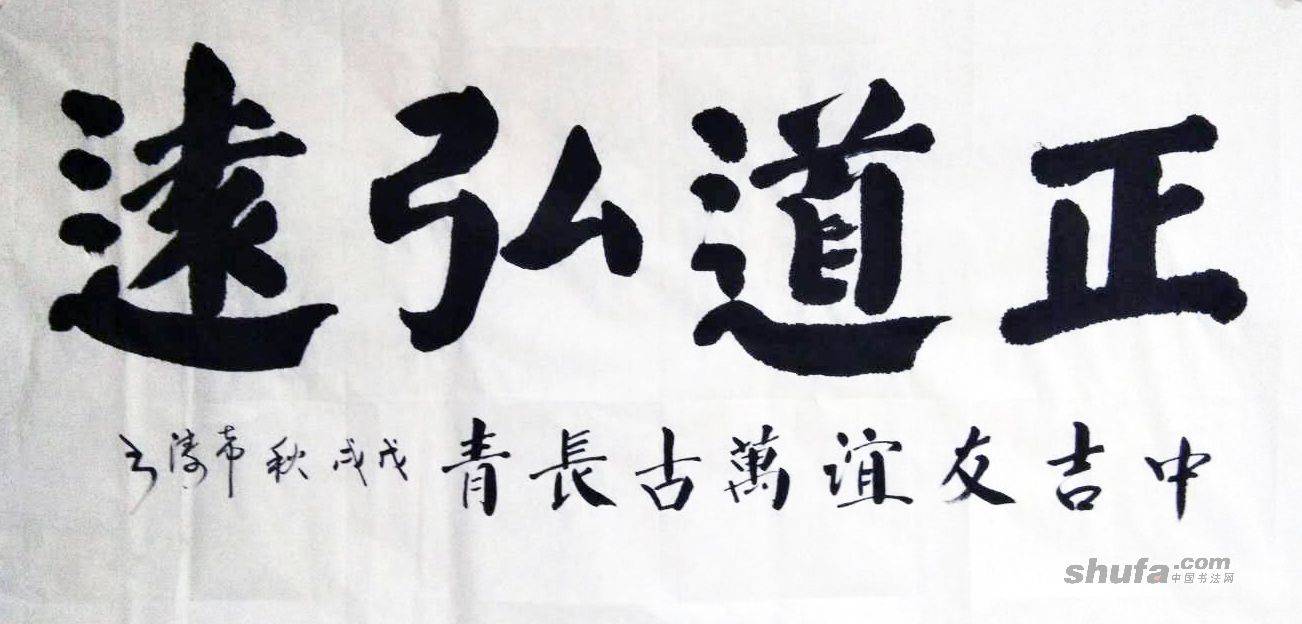 正道弘遠
中吉友誼萬古長青 戊戌秋 希濤书
shufa.com
中国书法网